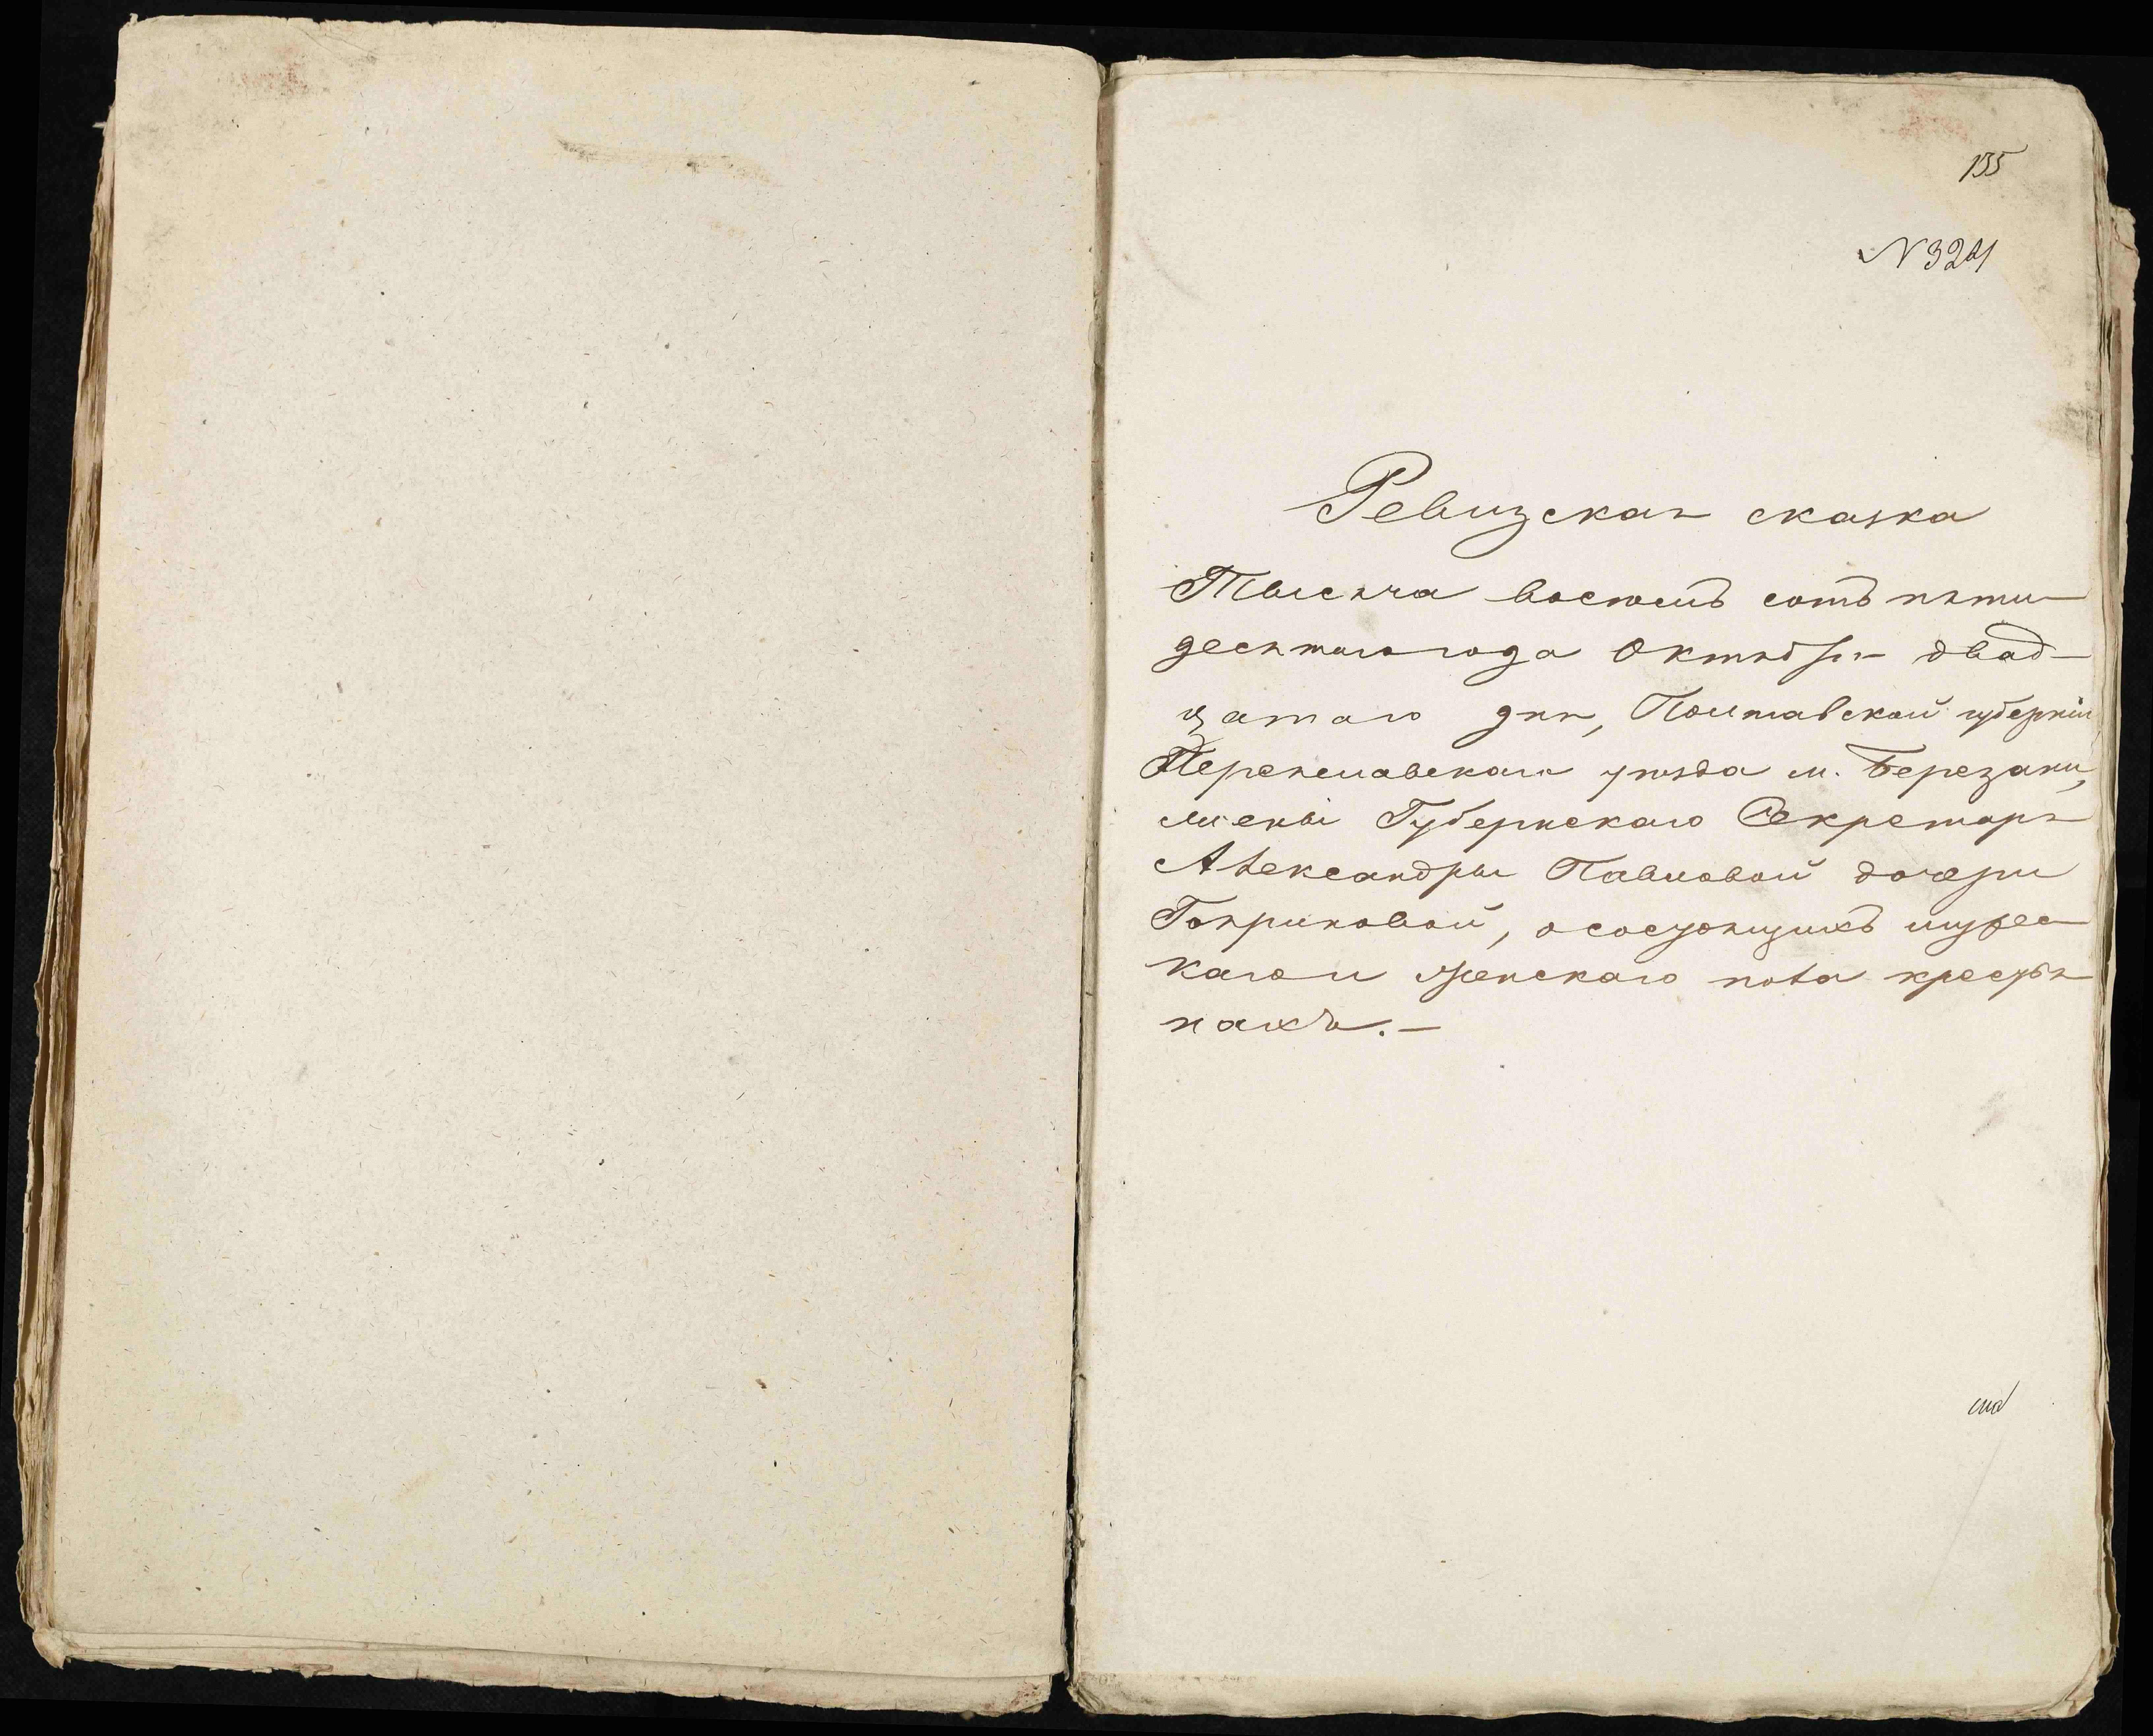 155
N 3201
Ревизская сказка
Тысяча восемь сотъ пяти
десятого года Октября двад-
цатого дня, Полтавской губерніи
Переяславскаго уѣзда м. Березани,
жены Губернскаго Секретаря
Александры Павловой дочери
о состоящихъ мужес
каго и женскаго пола кресть
янахъ. —